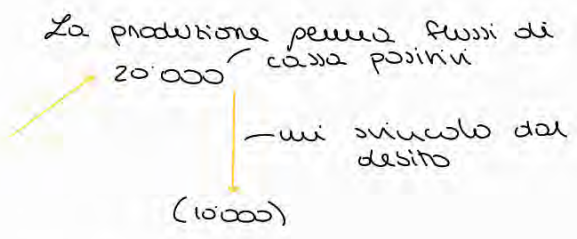 La produzione permea flussi di
cassa positivi
20'000
mi svincolo dal
debito
(10'000)